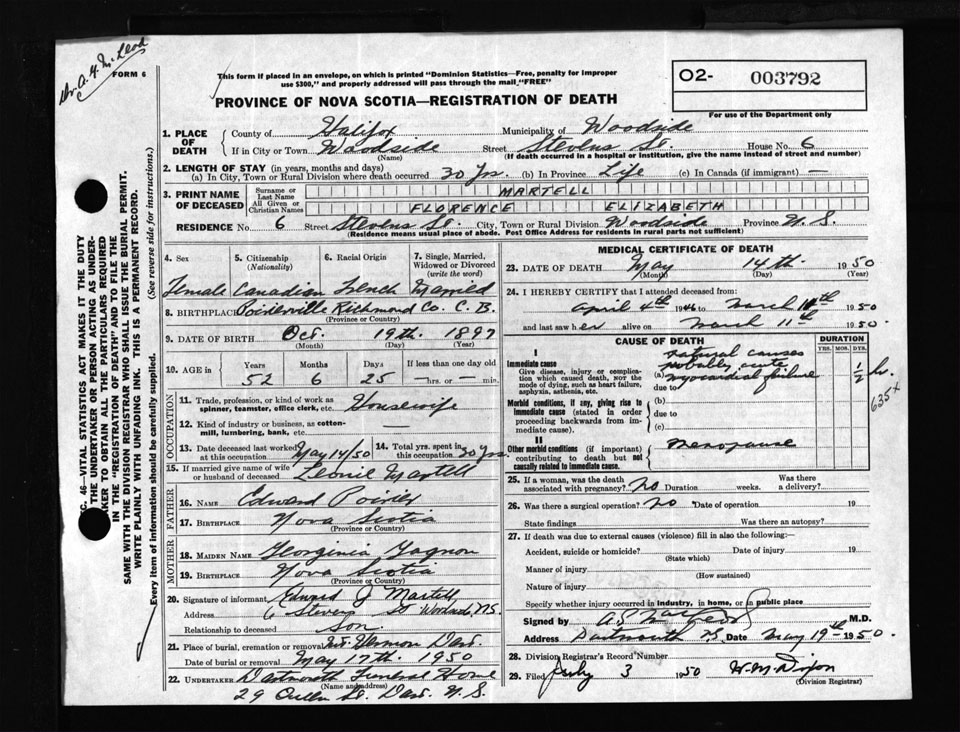 Dr. A. F. McLeod
FORM 6
This form if placed in an envelope, on which is printed "Dominion Statistics—Free, penalty for improper
use $300," and properly addressed will pass through the mail "FREE"
PROVINCE OF NOVA SCOTIA—REGISTRATION OF DEATH
O2- 003792
For use of the Department only
1. PLACE OF DEATH
County of Halifax Municipality of Woodside
If in City or Town Woodside Street Stevens St. House No. 6
(Name) (If death occurred in a hospital or institution, give the name instead of street and number)
2. LENGTH OF STAY (in years, months and days)
(a) In City, Town or Rural Division where death occurred 30 Yrs. (b) In Province Life (c) In Canada (if immigrant) —
3. PRINT NAME OF DECEASED
Surname or Last Name MARTELL
All Given or Christian Names FLORENCE ELIZABETH
RESIDENCE No. 6 Street Stevens St. City, Town or Rural Division Woodside Province N. S.
(Residence means usual place of abode. Post Office Address for residents in rural parts not sufficient)
4. Sex
Female
5. Citizenship (Nationality)
Canadian
6. Racial Origin
French
7. Single, Married, Widowed or Divorced (write the word)
Married
8. BIRTHPLACE Richmond Co. C. B.
(Province or Country)
9. DATE OF BIRTH Oct. 19th. 1897
(Month) (Day) (Year)
10. AGE in Years Months Days If less than one day old
52 6 25 — hrs. or — min.
OCCUPATION
11. Trade, profession, or kind of work as spinner, teamster, office clerk, etc. Housewife
12. Kind of industry or business, as cotton-mill, lumbering, bank, etc. —
13. Date deceased last worked at this occupation May 14/50
14. Total yrs. spent in this occupation 30 Yrs.
15. If married give name of wife or husband of deceased Martell
FATHER
16. NAME Edward Poirier
17. BIRTHPLACE Nova Scotia
(Province or Country)
MOTHER
18. MAIDEN NAME Georginia Gagnon
19. BIRTHPLACE Nova Scotia
(Province or Country)
20. Signature of informant Edward J Martell
Address 6 Stevens St Woodside, N.S.
Relationship to deceased Son.
21. Place of burial, cremation or removal Mt. Hermon Dart.
Date of burial or removal May 17th 1950
22. UNDERTAKER Dartmouth Funeral Home
(Name and address)
29 Queen St. Dart. N. S.
MEDICAL CERTIFICATE OF DEATH
23. DATE OF DEATH May 14th. 1950
(Month) (Day) (Year)
24. I HEREBY CERTIFY that I attended deceased from:
April 4th 1946 to March 11th 1950
and last saw her alive on March 11th 1950.
CAUSE OF DEATH
DURATION
YRS. MOS. DYS.
I
Immediate cause
Give disease, injury, or complication which caused death, not the mode of dying, such as heart failure, asphyxia, asthenia, etc.
natural causes
probably acute
(a) myocardial failure ½ hr.
due to
Morbid conditions, if any, giving rise to immediate cause (stated in order proceeding backwards from immediate cause).
(b)
due to
(c)
II
Other morbid conditions (if important) contributing to death but not causally related to immediate cause.
Menopause
25. If a woman, was the death associated with pregnancy? No Duration weeks. Was there a delivery?
26. Was there a surgical operation? No Date of operation 19
State findings Was there an autopsy?
27. If death was due to external causes (violence) fill in also the following:—
Accident, suicide or homicide? Date of injury 19
(State which)
Manner of injury
(How sustained)
Nature of injury
Specify whether injury occurred in industry, in home, or in public place
Signed by M.D.
Address Dartmouth N.S. Date May 19th 1950.
28. Division Registrar's Record Number
29. Filed July 3 1950 W. M. Dixon
(Division Registrar)
SEC. 46—VITAL STATISTICS ACT MAKES IT THE DUTY
OF THE UNDERTAKER OR PERSON ACTING AS UNDER-
TAKER TO OBTAIN ALL THE PARTICULARS REQUIRED
IN THE "REGISTRATION OF DEATH" AND TO FILE THE
SAME WITH THE DIVISION REGISTRAR WHO SHALL ISSUE THE BURIAL PERMIT.
WRITE PLAINLY WITH UNFADING INK. THIS IS A PERMANENT RECORD.
Every item of information should be carefully supplied. (See reverse side for instructions.)